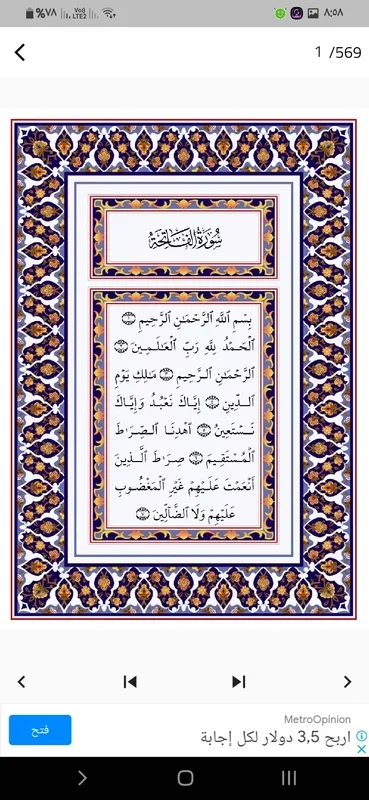 %٧٨ Vo)) LTE2 ٨:٥٨
1 /569
سُورَةُ الفَاتِحَةِ
بِسْمِ ٱللَّهِ ٱلرَّحْمَـٰنِ ٱلرَّحِيمِ ۝١
ٱلْحَمْدُ لِلَّهِ رَبِّ ٱلْعَـٰلَمِينَ ۝٢
ٱلرَّحْمَـٰنِ ٱلرَّحِيمِ ۝٣ مَـٰلِكِ يَوْمِ
ٱلدِّينِ ۝٤ إِيَّاكَ نَعْبُدُ وَإِيَّاكَ
نَسْتَعِينُ ۝٥ ٱهْدِنَا ٱلصِّرَٰطَ
ٱلْمُسْتَقِيمَ ۝٦ صِرَٰطَ ٱلَّذِينَ
أَنْعَمْتَ عَلَيْهِمْ غَيْرِ ٱلْمَغْضُوبِ
عَلَيْهِمْ وَلَا ٱلضَّآلِّينَ ۝٧
MetroOpinion
اربح 3,5 دولار لكل إجابة
فتح